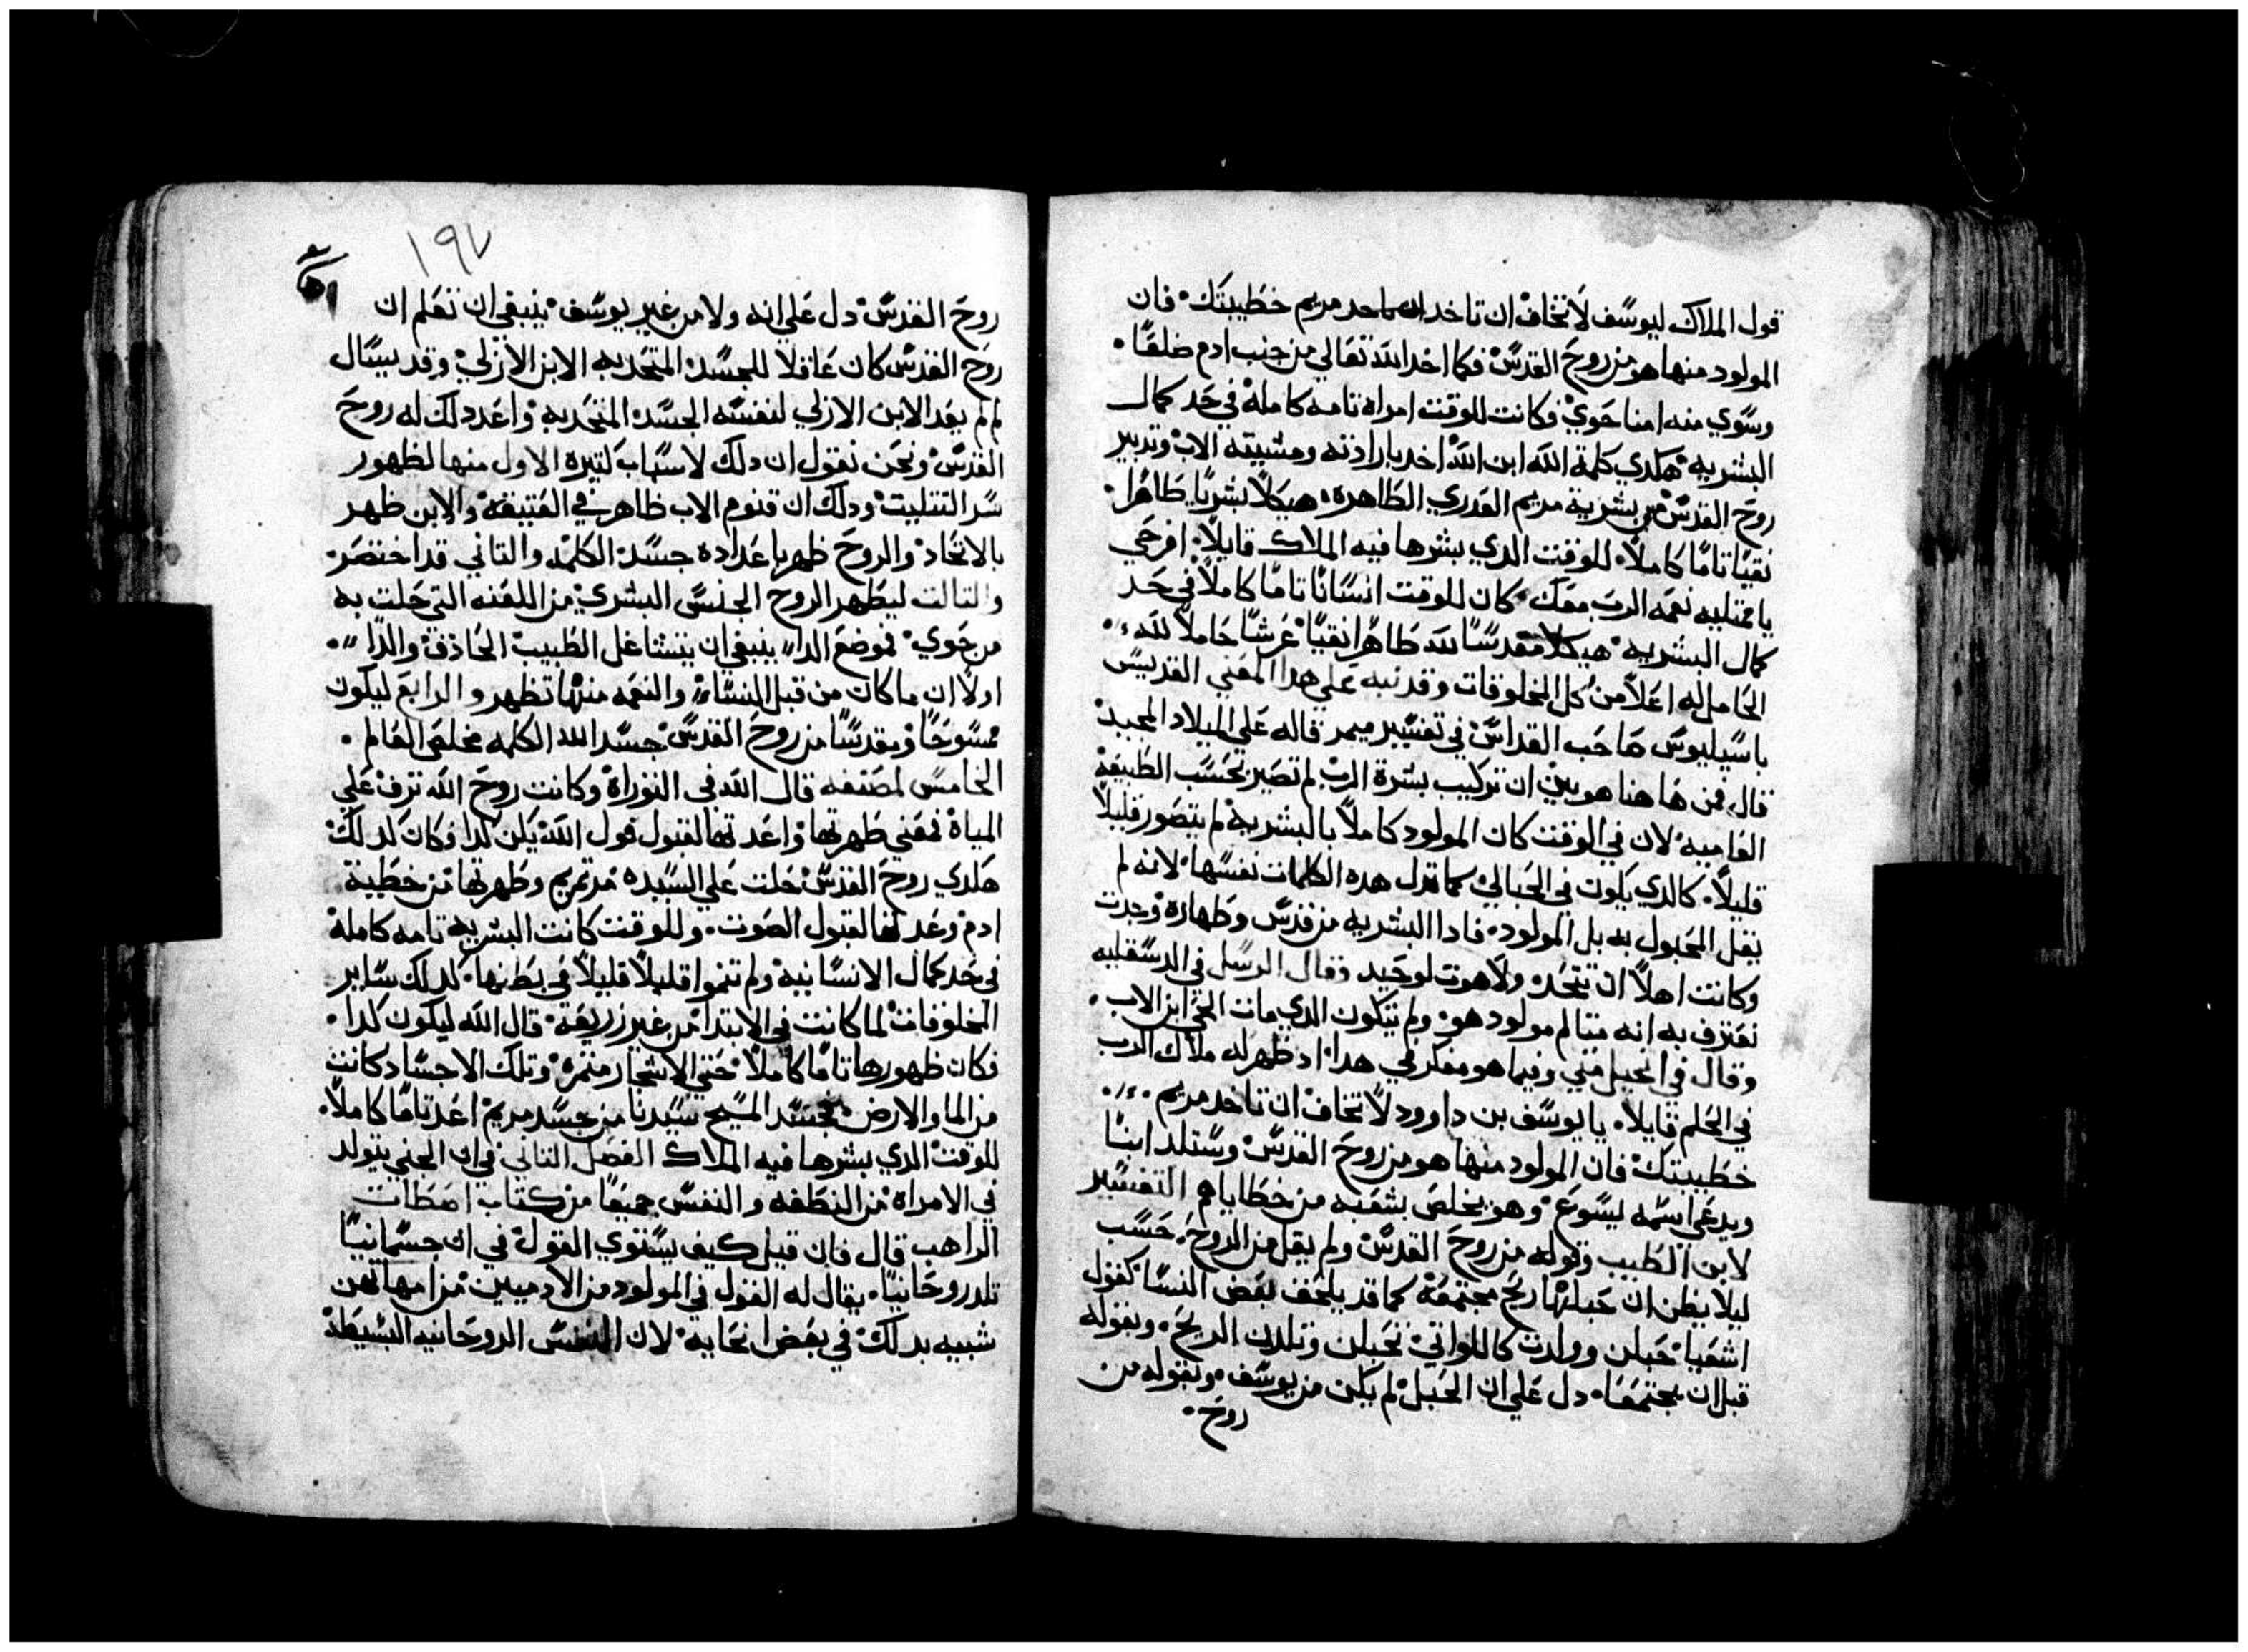 قول الملاك ليوسف لا تخاف ان تاخد مريم خطيبتك فان
المولود منها هو من روح القدس فكما اخد الله تعالي من جنب ادم ضلعًا
وسوي منه امنا حوي وكانت للوقت امراه تامه كامله في حد كمال
البشريه هكدي كلمة الله ابن الله اخد بارادته ومشييه الاب وتدبير
روح القدس من بشرية مريم العدري الطاهره هيكلاً بشريًا طاهرًا
نقيًا تامًا كاملاً للوقت الدي بشرها فيه الملاك قايلاً افرحي
يا ممتليه نعمه الرب معك كان للوقت انسانًا تامًا كاملاً في حد
كمال البشريه هيكلاً مقدسًا لله طاهرًا نقيًا عرشًا حاملاً لله
الحامل له اعلا من كل المخلوقات وقد نبه علي هدا المعني القديس
باسيليوس صاحب القداس في تفسير ميمر قاله علي الميلاد المجيد
قال فمن هاهنا هو بين ان تركيب بشرة الرب لم تصير بحسب الطبيعه
العاميه لان في الوقت كان المولود كاملاً بالبشريه لم يتصور قليلاً
قليلاً كالدي يكون في الحبالي كما تدل هده الكلمات نفسها لانه لم
يقل المحبول به بل المولود فادا البشريه من قدس وطهاره وجدت
وكانت اهلاً ان تتحد ولاهوت لوحيد وقال الرسل في الدسقليه
نعترف به انه متالم مولود هو ولم يتكون الدي مات الحي ابن الاب
وقال في انجيل متي وفيما هو مفكر في هدا اد ظهر له ملاك الرب
في الحلم قايلاً يا يوسف بن داوود لا تخاف ان تاخد مريم
خطيبتك فان المولود منها هو من روح القدس وستلد ابنًا
ويدعي اسمه يسوع وهو يخلص شعبه من خطاياهم التفسير
لابن الطيب وقوله من روح القدس ولم يقل من الروح حسب
ليلا يظن ان حبلها ريح مجتمعه كما قد يلحق بعض النسا كقول
اشعيا حبلن وولدت كاللواتي تحبلن وتلدن الريح وبقوله
قبل ان يجتمعا دل علي ان الحبل لم يكن من يوسف وبقوله من
روح
١٩٧
روح القدس دل علي انه ولا من غير يوسف ينبغي ان تعلم ان
روح القدس كان عاقلا للجسد المتحد به الابن الازلي وقد يسال
لم لم يعد الابن الازلي لنفسه الجسد المتحد به واعد دلك له روح
القدس ونحن نقول ان دلك لاسباب كتيره الاول منها لظهور
سر التتليت ودلك ان قنوم الاب ظاهر في العتيقه والابن ظهر
بالاتحاد والروح ظهر باعداده جسد الكلمه والتاني قد اختصر
والتالت ليطهر الروح الجنس البشري من اللعنه التي حلت به
من حوي فموضع الدا ينبغي ان يتشاغل الطبيب الحادق والدا
اولاً ان ما كان من قبل النساء والنعمه منها تظهر والرابع ليكون
ممسوحًا ومقدسًا من روح القدس جسد الله الكلمه مخلص العالم
الخامس لمصنفه قال الله في التوراة وكانت روح الله ترف علي
المياة فمعني طهرتها واعدتها لقبول قول الله يكن كدا وكان كدلك
هكدي روح القدس حلت علي السيده مرتمريم وطهرتها من خطية
ادم وعدتها لقبول الصوت وللوقت كانت البشريه تامه كامله
في حد كمال الانسانيه ولم تنموا قليلاً قليلاً في بطنها كدلك ساير
المخلوقات لما كانت في الابتدا من غير زريعه قال الله ليكون كدا
فكان ظهورها تامًا كاملاً حتي الاشجار متمره وتلك الاجساد كانت
من الما والارض فجسد المسيح سيدنا من جسد مريم اعد تامًا كاملاً
للوقت الدي بشرها فيه الملاك الفصل التاني في ان الجنين يتولد
في الامراه من النطفه والنفس جميعًا من كتاب اصطات
الراهب قال فان قيل كيف يستوي القول في ان جسمانيًا
تلد روحانيًا يقال له القول في المولود من الادميين من امهاتهن
شبيه بدلك في بعض انحايه لان النفس الروحانيه البسيطه